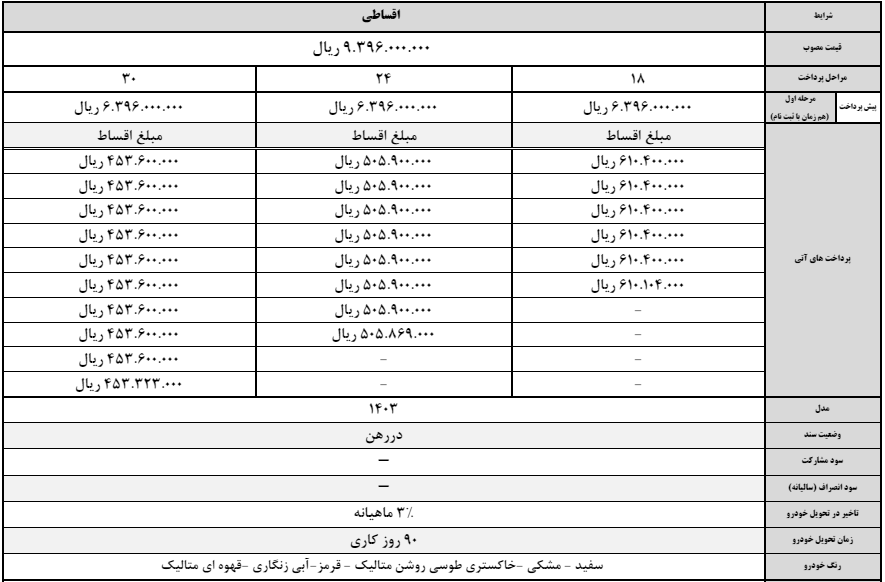 شرایط اقساطی
قیمت مصوب ۹.۳۹۶.۰۰۰.۰۰۰ ریال
مراحل پرداخت ۱۸ ۲۴ ۳۰
پیش پرداخت مرحله اول (هم زمان با ثبت نام) ۶.۳۹۶.۰۰۰.۰۰۰ ریال ۶.۳۹۶.۰۰۰.۰۰۰ ریال ۶.۳۹۶.۰۰۰.۰۰۰ ریال
پرداخت های آتی مبلغ اقساط مبلغ اقساط مبلغ اقساط
۶۱۰.۴۰۰.۰۰۰ ریال ۵۰۵.۹۰۰.۰۰۰ ریال ۴۵۳.۶۰۰.۰۰۰ ریال
۶۱۰.۴۰۰.۰۰۰ ریال ۵۰۵.۹۰۰.۰۰۰ ریال ۴۵۳.۶۰۰.۰۰۰ ریال
۶۱۰.۴۰۰.۰۰۰ ریال ۵۰۵.۹۰۰.۰۰۰ ریال ۴۵۳.۶۰۰.۰۰۰ ریال
۶۱۰.۴۰۰.۰۰۰ ریال ۵۰۵.۹۰۰.۰۰۰ ریال ۴۵۳.۶۰۰.۰۰۰ ریال
۶۱۰.۴۰۰.۰۰۰ ریال ۵۰۵.۹۰۰.۰۰۰ ریال ۴۵۳.۶۰۰.۰۰۰ ریال
۶۱۰.۱۰۴.۰۰۰ ریال ۵۰۵.۹۰۰.۰۰۰ ریال ۴۵۳.۶۰۰.۰۰۰ ریال
– ۵۰۵.۹۰۰.۰۰۰ ریال ۴۵۳.۶۰۰.۰۰۰ ریال
– ۵۰۵.۸۶۹.۰۰۰ ریال ۴۵۳.۶۰۰.۰۰۰ ریال
– – ۴۵۳.۶۰۰.۰۰۰ ریال
– – ۴۵۳.۳۲۳.۰۰۰ ریال
مدل ۱۴۰۳
وضعیت سند دررهن
سود مشارکت –
سود انصراف (سالیانه) –
تاخیر در تحویل خودرو ۳٪ ماهیانه
زمان تحویل خودرو ۹۰ روز کاری
رنگ خودرو سفید - مشکی -خاکستری طوسی روشن متالیک - قرمز-آبی زنگاری -قهوه ای متالیک